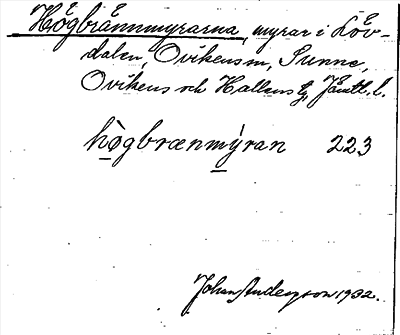 Högbrännmyrarna, myrar i Löv-
dalen, Ovikens sn, Sunne,
Ovikens och Hallens tg, Jämtl. l.
hògbrænmỳran 223
Johan Anderzon 1932.